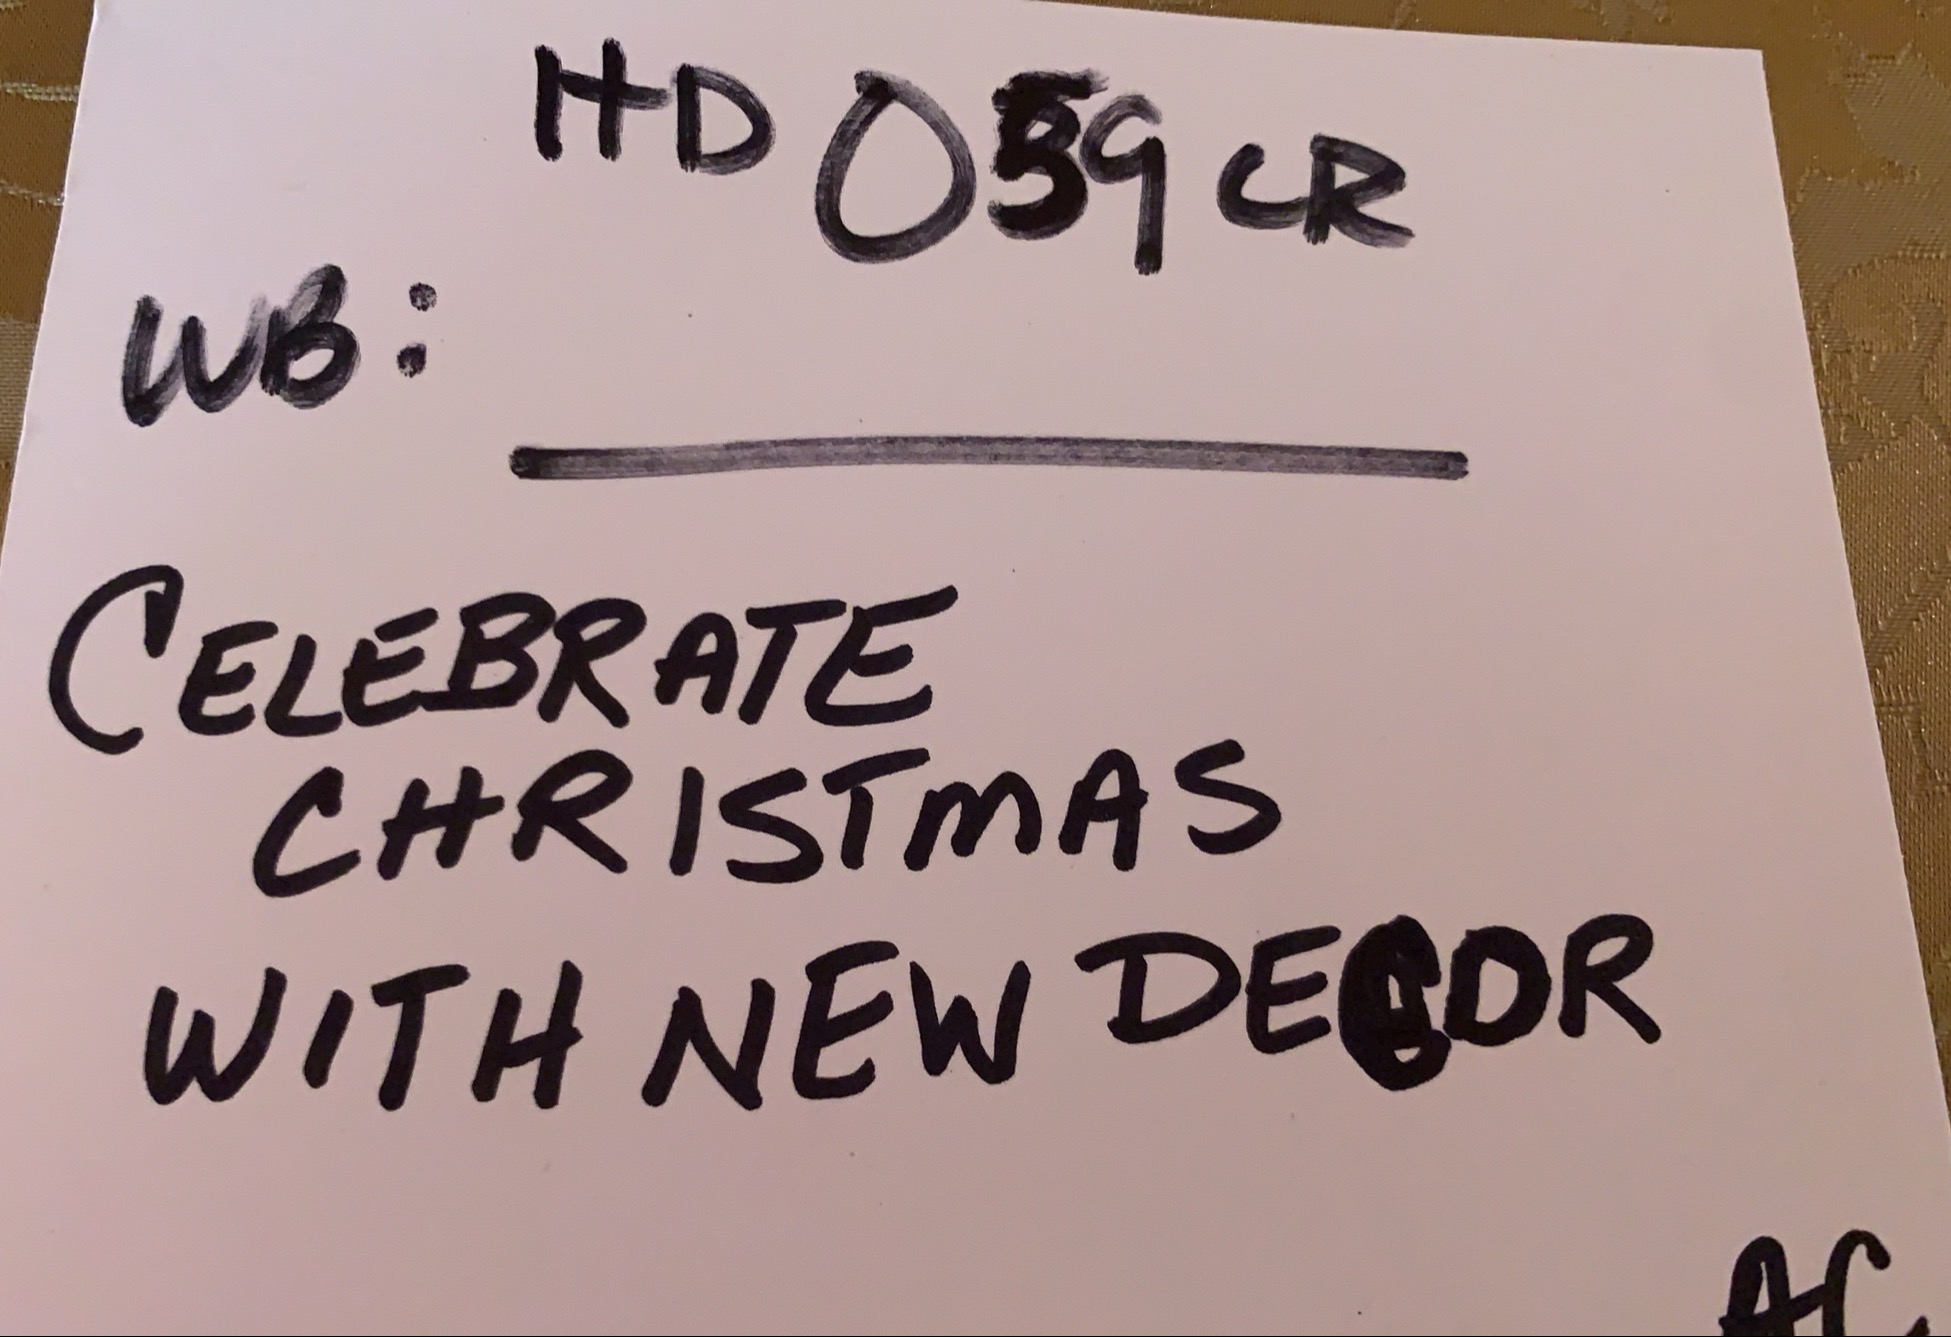 HD 059 CR
WB:
CELEBRATE
CHRISTMAS
WITH NEW DECOR
AC